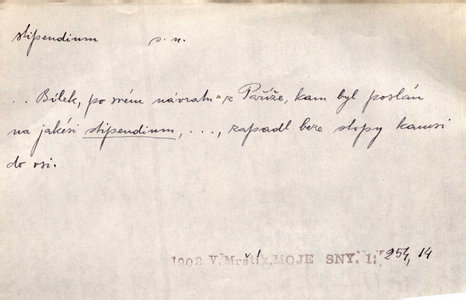 stipendium s. n.
.. Bílek, po svém návratu z Paříže, kam byl poslán
na jakési stipendium, ..., zapadl beze stopy kamsi
do vsi.
1902 V. Mrštík, MOJE SNY. I, 254, 14